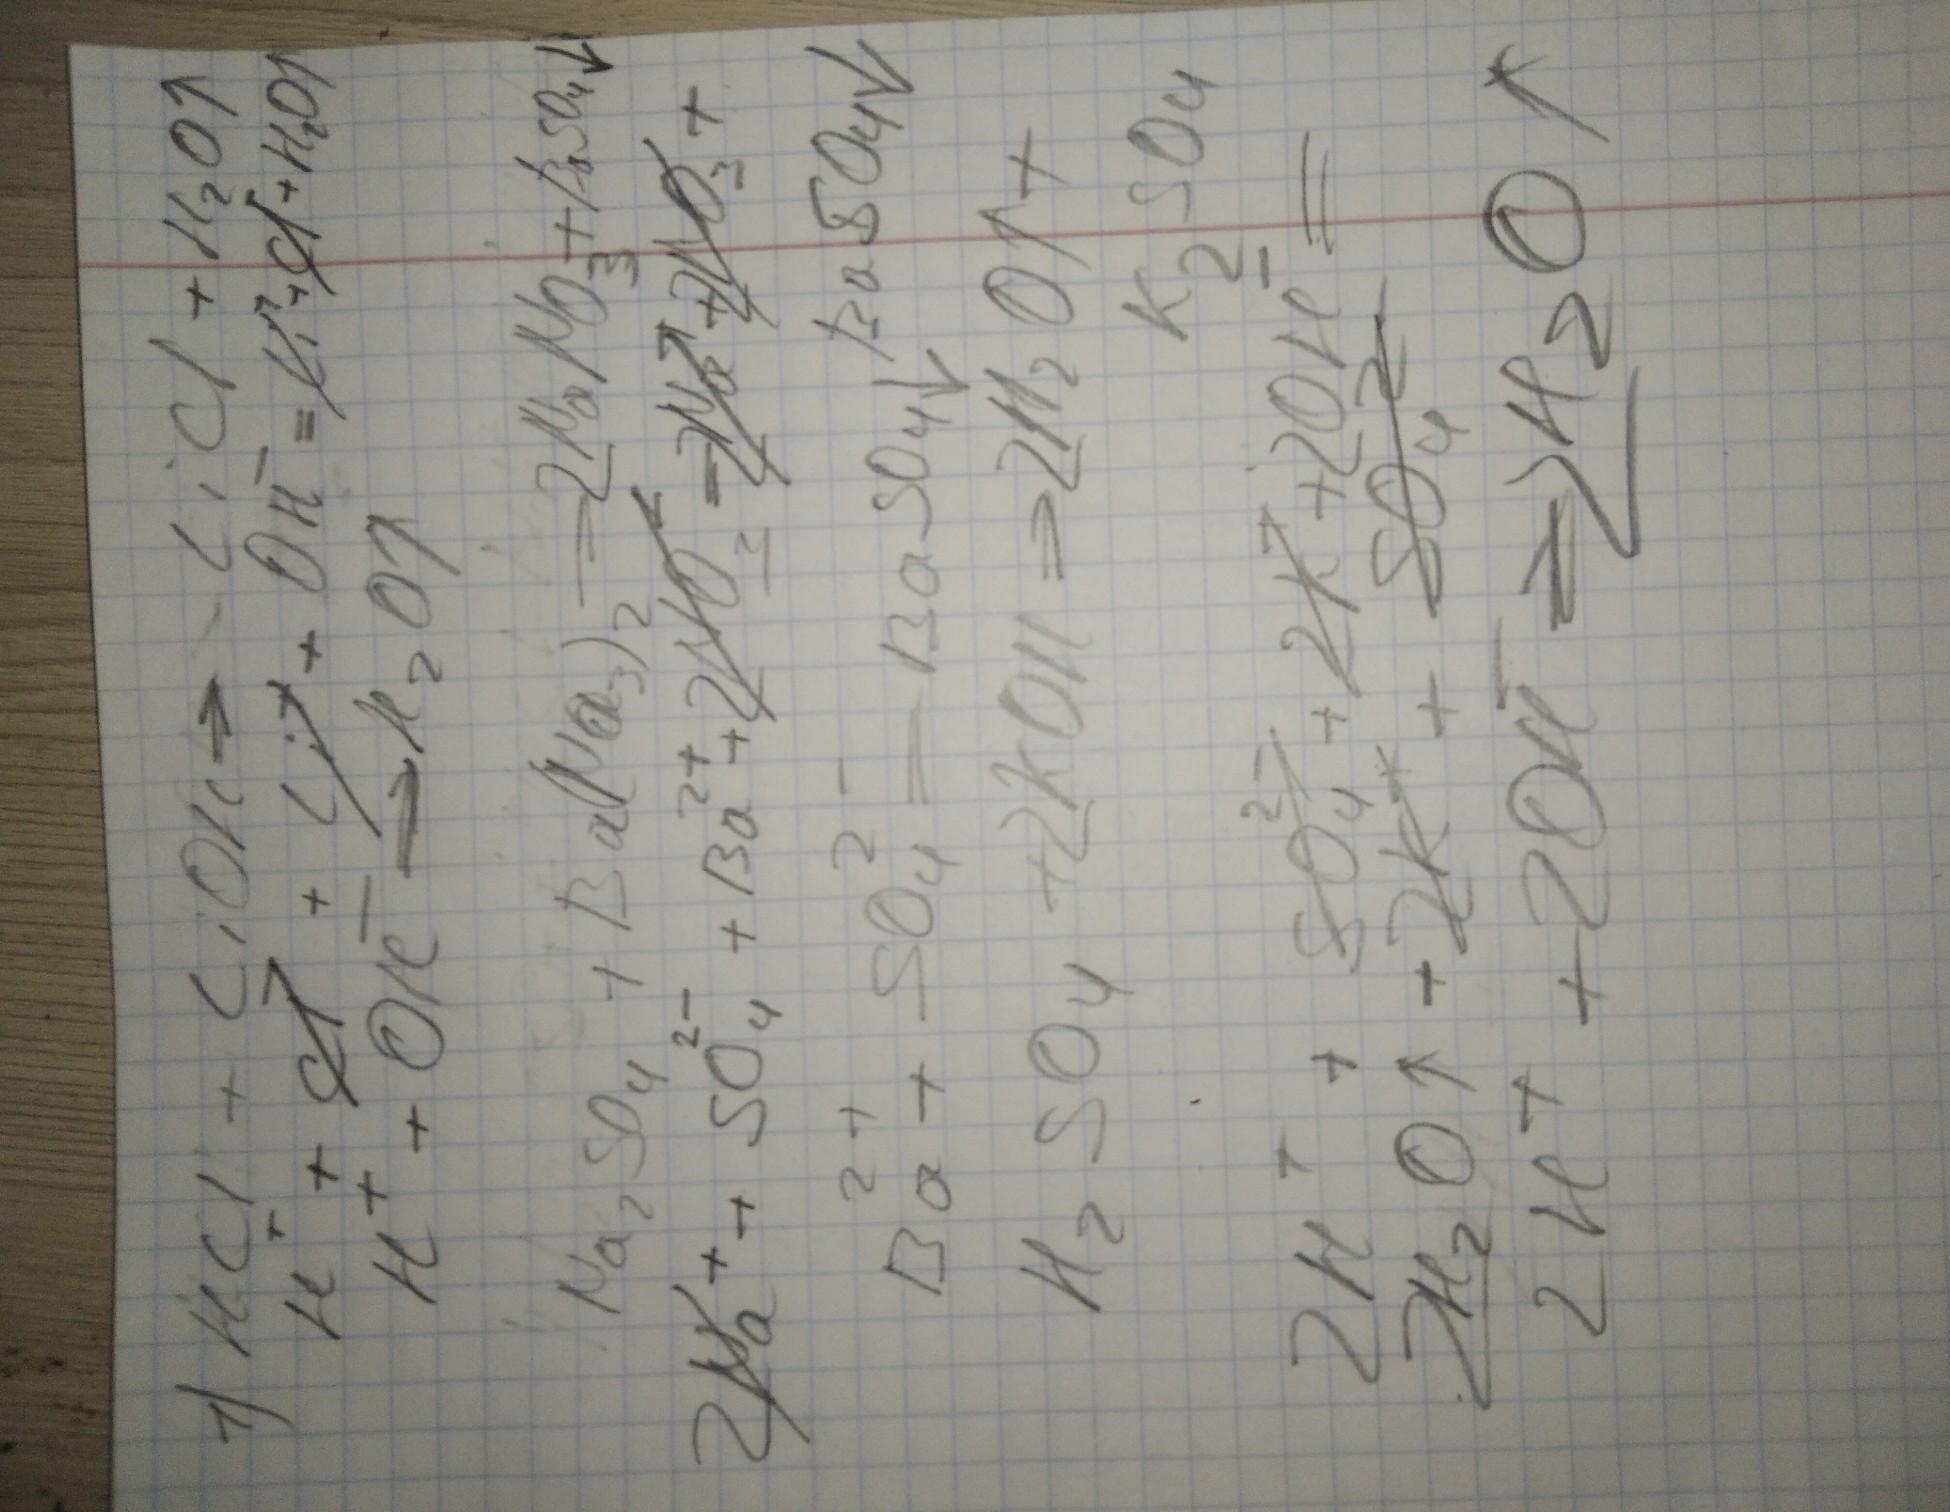 1) HCl + LiOH → LiCl + H₂O↑
H⁺ + Cl⁻ + Li⁺ + OH⁻ = Li⁺ + Cl⁻ + H₂O↑
H⁺ + OH⁻ → H₂O↑
Na₂SO₄ + Ba(NO₃)₂ = 2NaNO₃ + BaSO₄↓
2Na⁺ + SO₄²⁻ + Ba²⁺ + 2NO₃⁻ = 2Na⁺ + 2NO₃⁻ +
BaSO₄↓
Ba²⁺ + SO₄²⁻ = BaSO₄↓
H₂SO₄ + 2KOH = 2H₂O↑ +
K₂SO₄
2H⁺ + SO₄²⁻ + 2K⁺ + 2OH⁻ =
2H₂O↑ + 2K⁺ + SO₄²⁻
2H⁺ + 2OH⁻ = 2H₂O↑